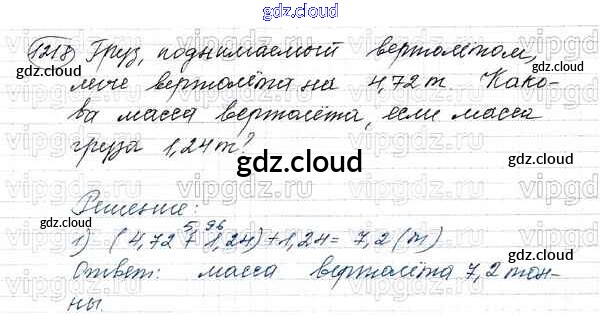 gdz.cloud
1218) Груз, поднимаемый вертолётом,
gdz.cloud gdz.cloud
легче вертолёта на 4,72 т. Како-
ва масса вертолёта, если масса
груза 1,24 т?
gdz.cloud
Решение:
gdz.cloud gdz.cloud
5,96
1) (4,72 + 1,24) + 1,24 = 7,2 (т)
Ответ: масса вертолёта 7,2 тон-
ны.
gdz.cloud